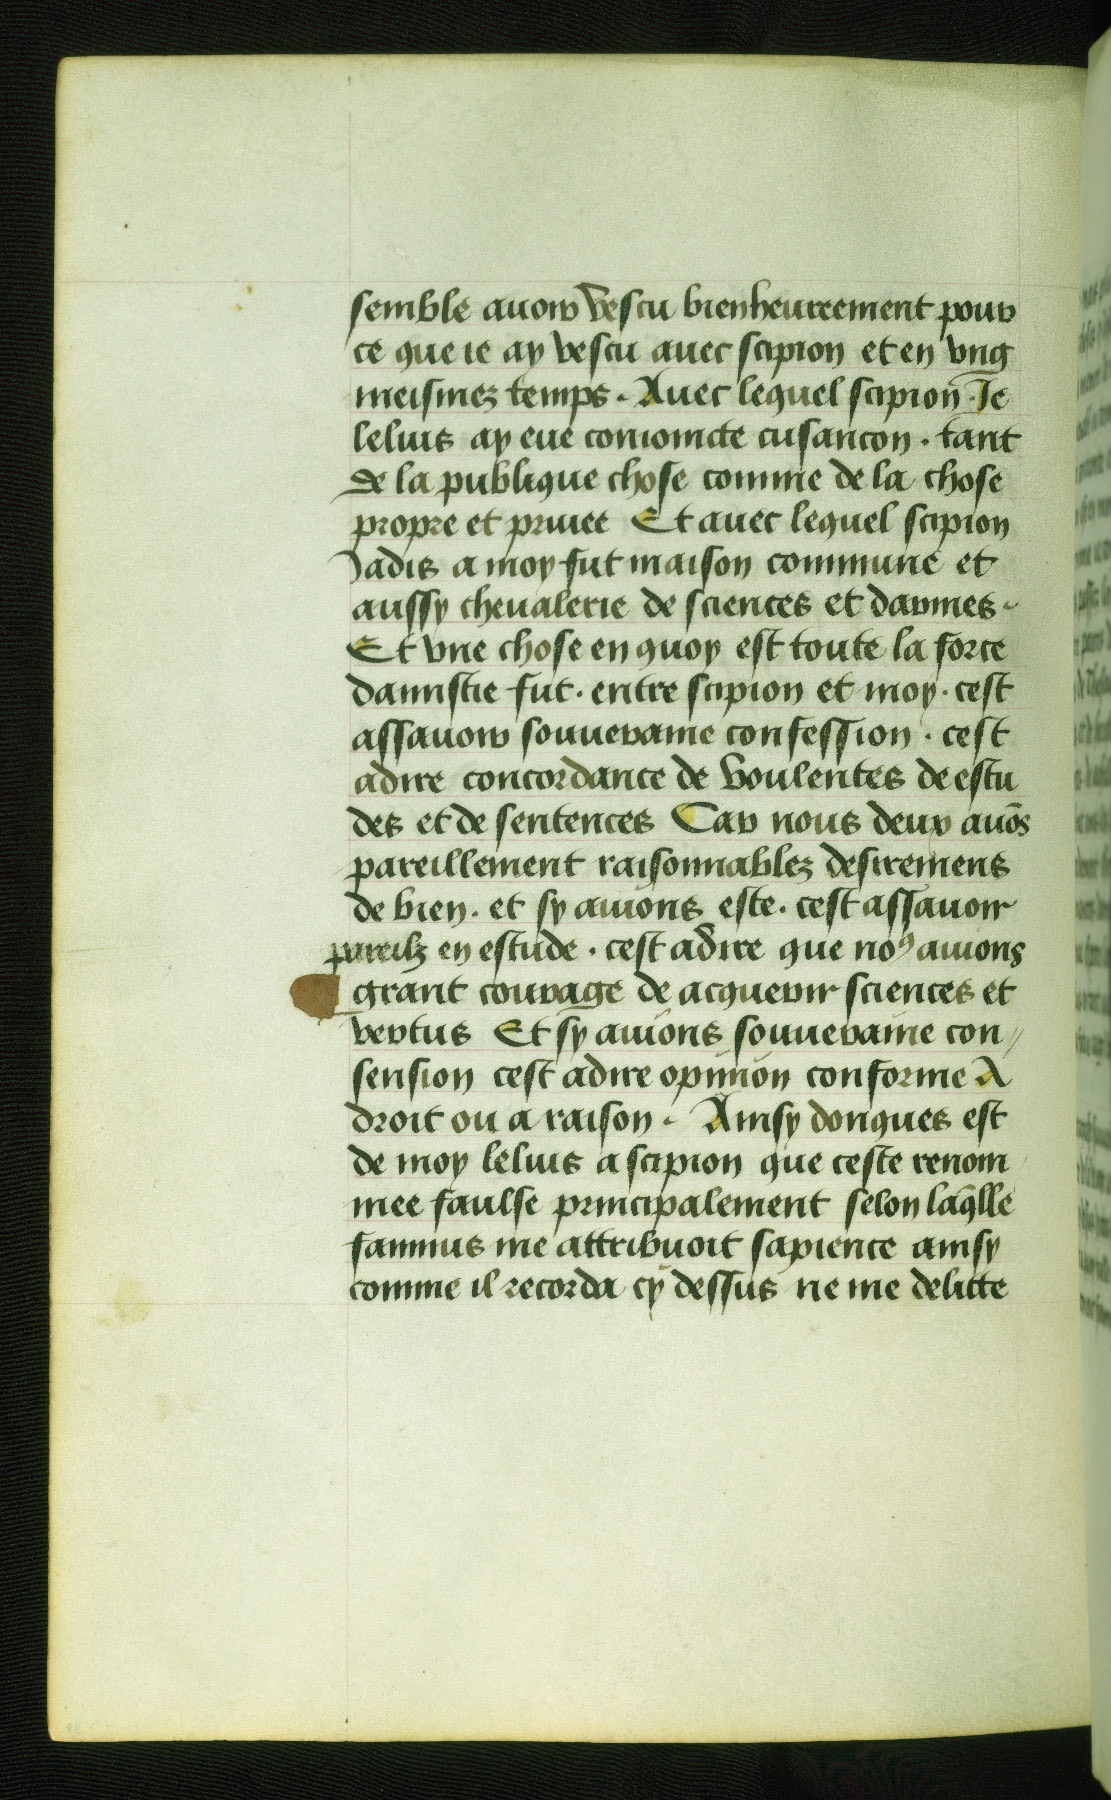 semble auoir vescu bienheureement pour
ce que ie ay vescu auec scipion et en vng
meismez temps. Auec lequel scipion. Je
lelius ay eue conioincte cusancon. tant
de la publique chose comme de la chose
propre et priuee Et auec lequel scipion
Jadis a moy fut maison commune et
aussy cheualerie de sciences et darmes.
Et vne chose en quoy est toute la force
damistie fut. entre scipion et moy. cest
assauoir souueraine confession. cest
adire concordance de voulentes de estu
des et de sentences Car nous deux auōs
pareillement raisonnablez desiremens
de bien. et sy auions este. cest assauoir
pareilz en estude. cest adire que noꝰ auions
grant courage de acquerir sciences et
vertus Et sy auions souueraine con//
sension cest adire opinion conforme A
droit ou a raison. Ainsy donques est
de moy lelius a scipion que ceste renom
mee faulse principalement selon laq̄lle
fannius me attribuoit sapience ainsy
comme il recorda cy dessus ne me delicte